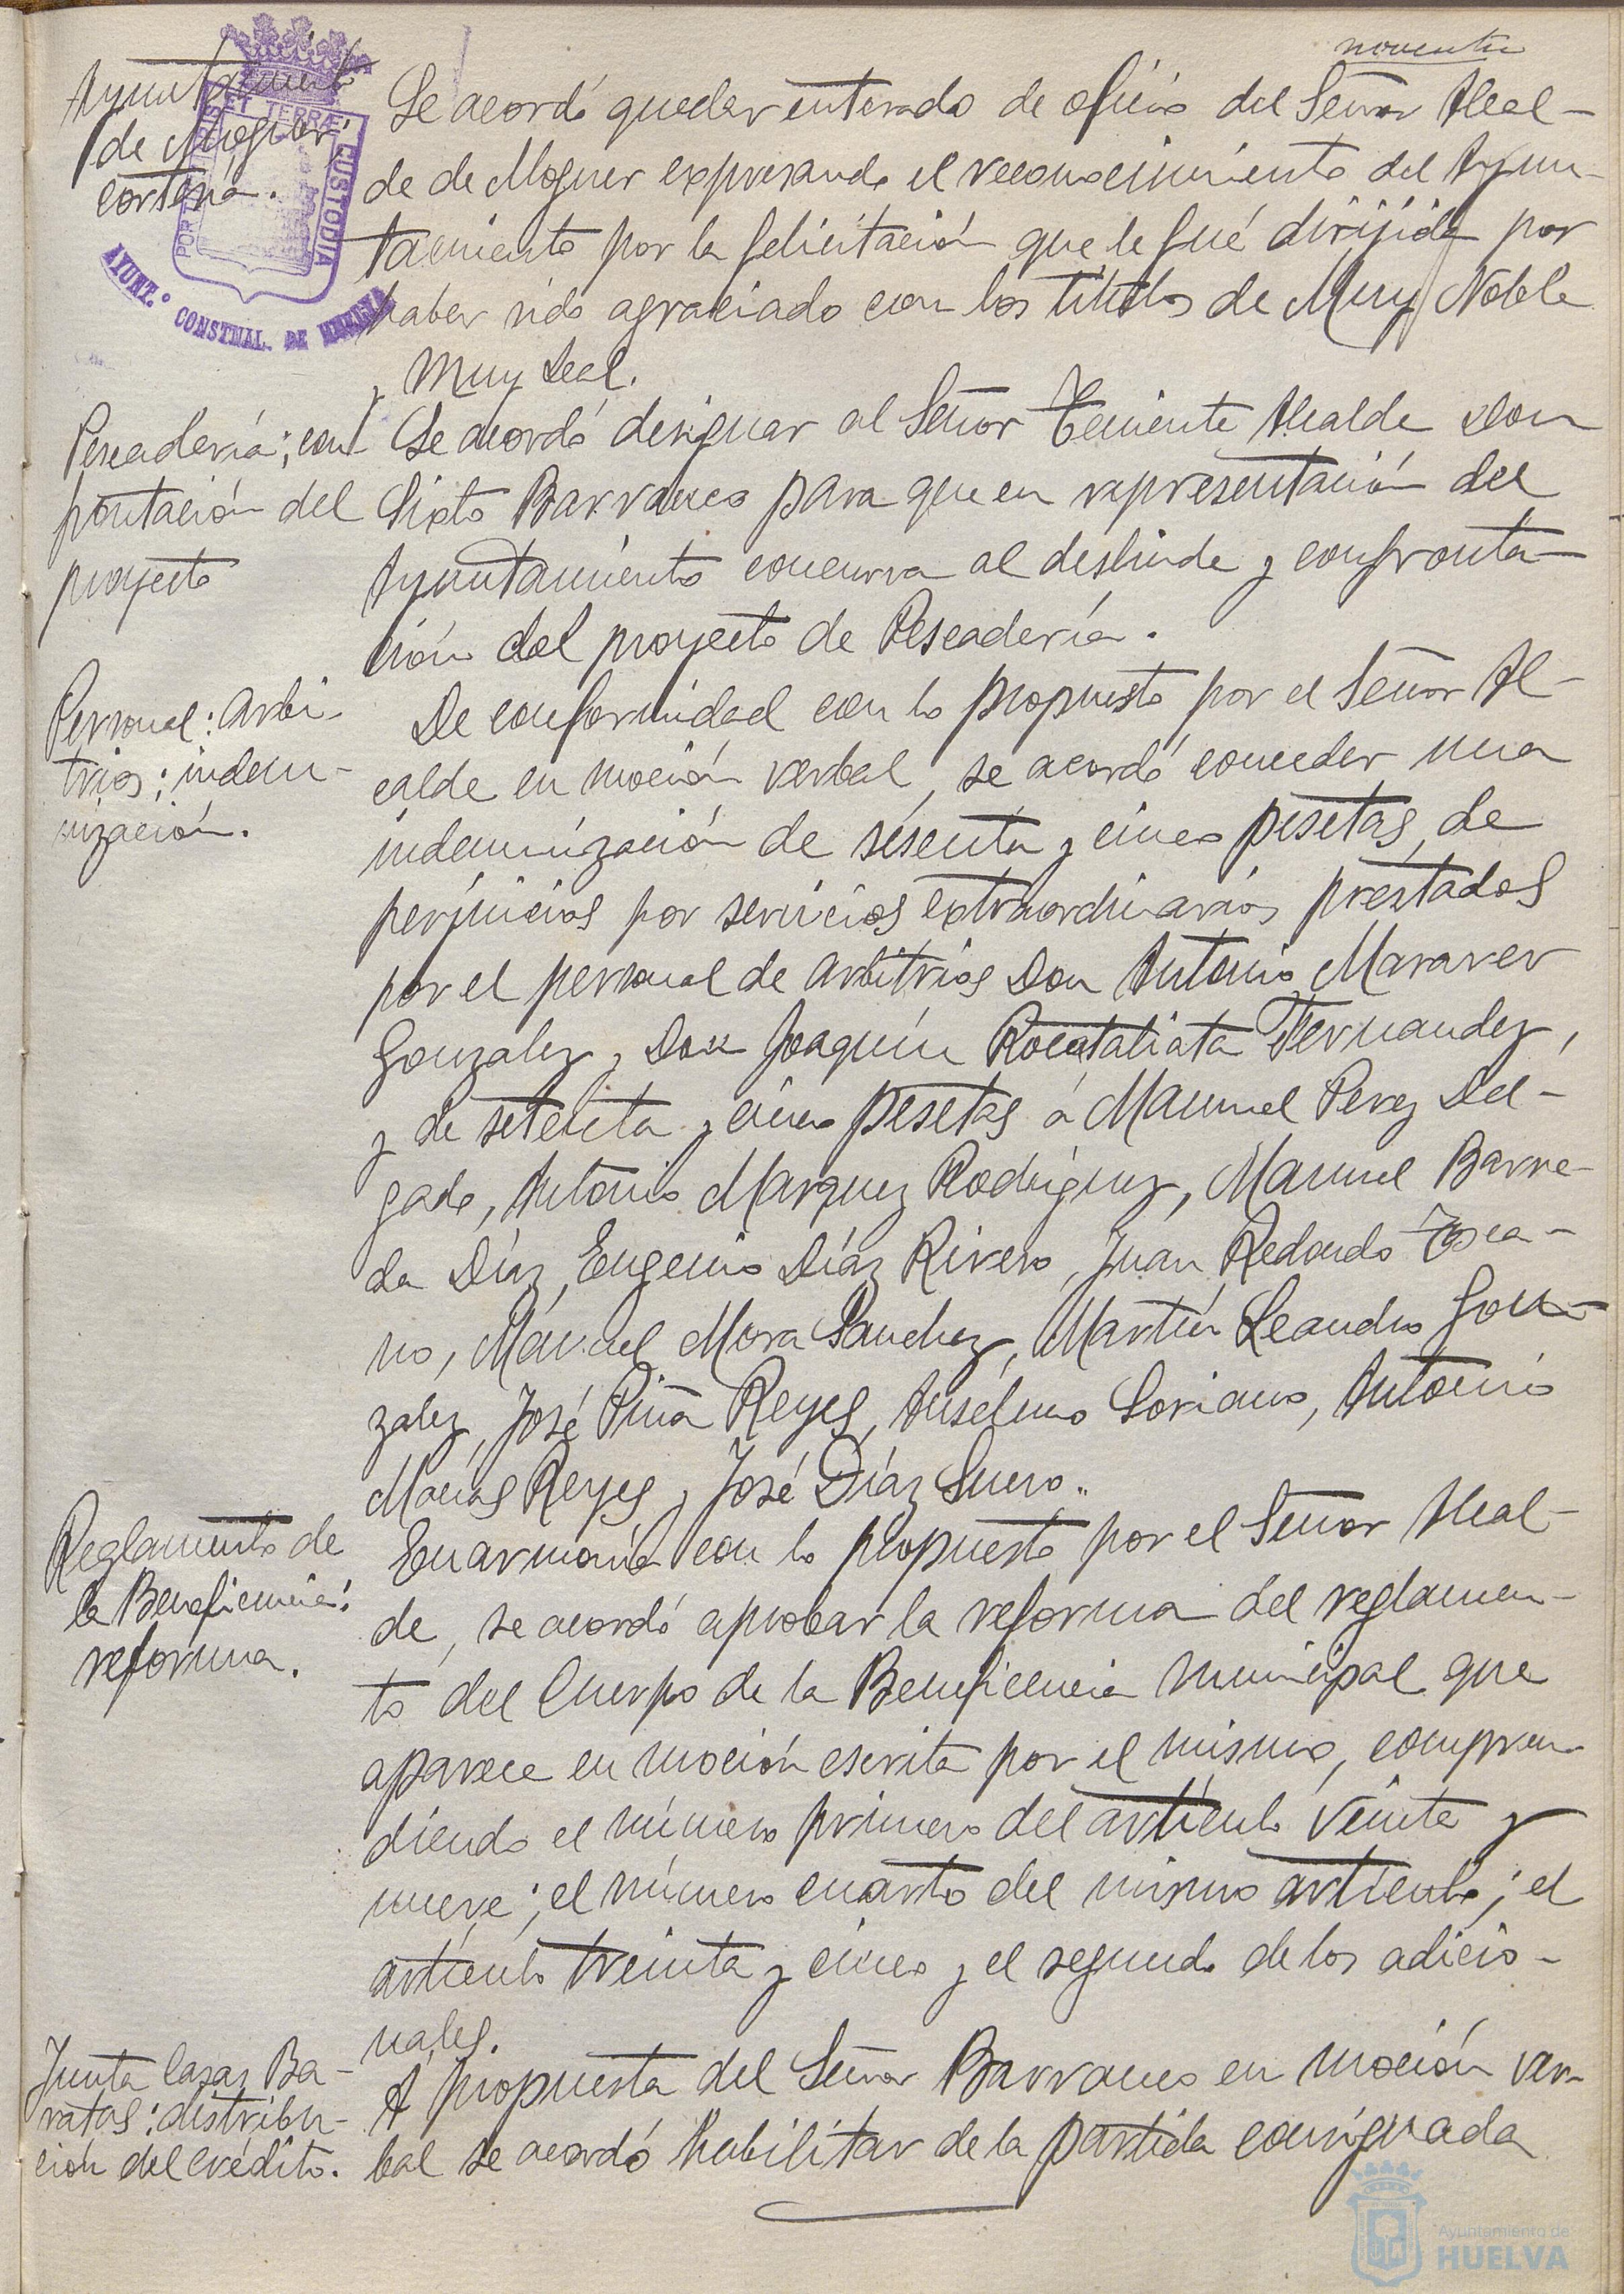 noventa
Ayuntamiento
de Moguer;
cortesía.
PORTUS MARIS ET TERRÆ CUSTODIA
AYUNT.º CONSTNAL. DE HUELVA
Se acordó quedar enterado de oficio del Señor Alcal-
de de Moguer expresando el reconocimiento del Ayun-
tamiento por la felicitación que le fué dirijida por
haber sido agraciado con los títulos de Muy Noble
y Muy Leal.
Pescadería; con-
frontación del
proyecto
Se acordó designar al Señor Teniente Alcalde Don
Sixto Barranco para que en representación del
Ayuntamiento concurra al deslinde y confronta-
ción del proyecto de Pescadería.
Personal: arbi-
trios; indem-
nización.
De conformidad con lo propuesto por el Señor Al-
calde en moción verbal, se acordó conceder una
indemnización de sesenta y cinco pesetas, de
perjuicios por servicios extraordinarios prestados
por el personal de arbitrios Don Antonio Maraver
Gonzalez y Don Joaquín Rocatallata Fernandez,
y de setenta y cinco pesetas á Manuel Perez Del-
gado, Antonio Marquez Rodriguez, Manuel Barre-
da Díaz, Eugenio Díaz Rivero, Juan Redondo Tosca-
no, Manuel Mora Sanchez, Martín Leandro Gon-
zalez, José Piña Reyes, Anselmo Soriano, Antonio
Macías Reyes y José Díaz Suero.
Reglamento de
la Beneficencia:
reforma.
En armonía con lo propuesto por el Señor Alcal-
de, se acordó aprobar la reforma del reglamen-
to del Cuerpo de la Beneficencia municipal que
aparece en moción escrita por el mismo, compren-
diendo el número primero del artículo veinte y
nueve; el número cuarto del mismo artículo; el
artículo treinta y cinco y el segundo de los adicio-
nales.
Junta Casas Ba-
ratas: distribu-
ción del crédito.
A propuesta del Señor Barranco en moción ver-
bal se acordó habilitar de la partida consignada
Ayuntamiento de
HUELVA